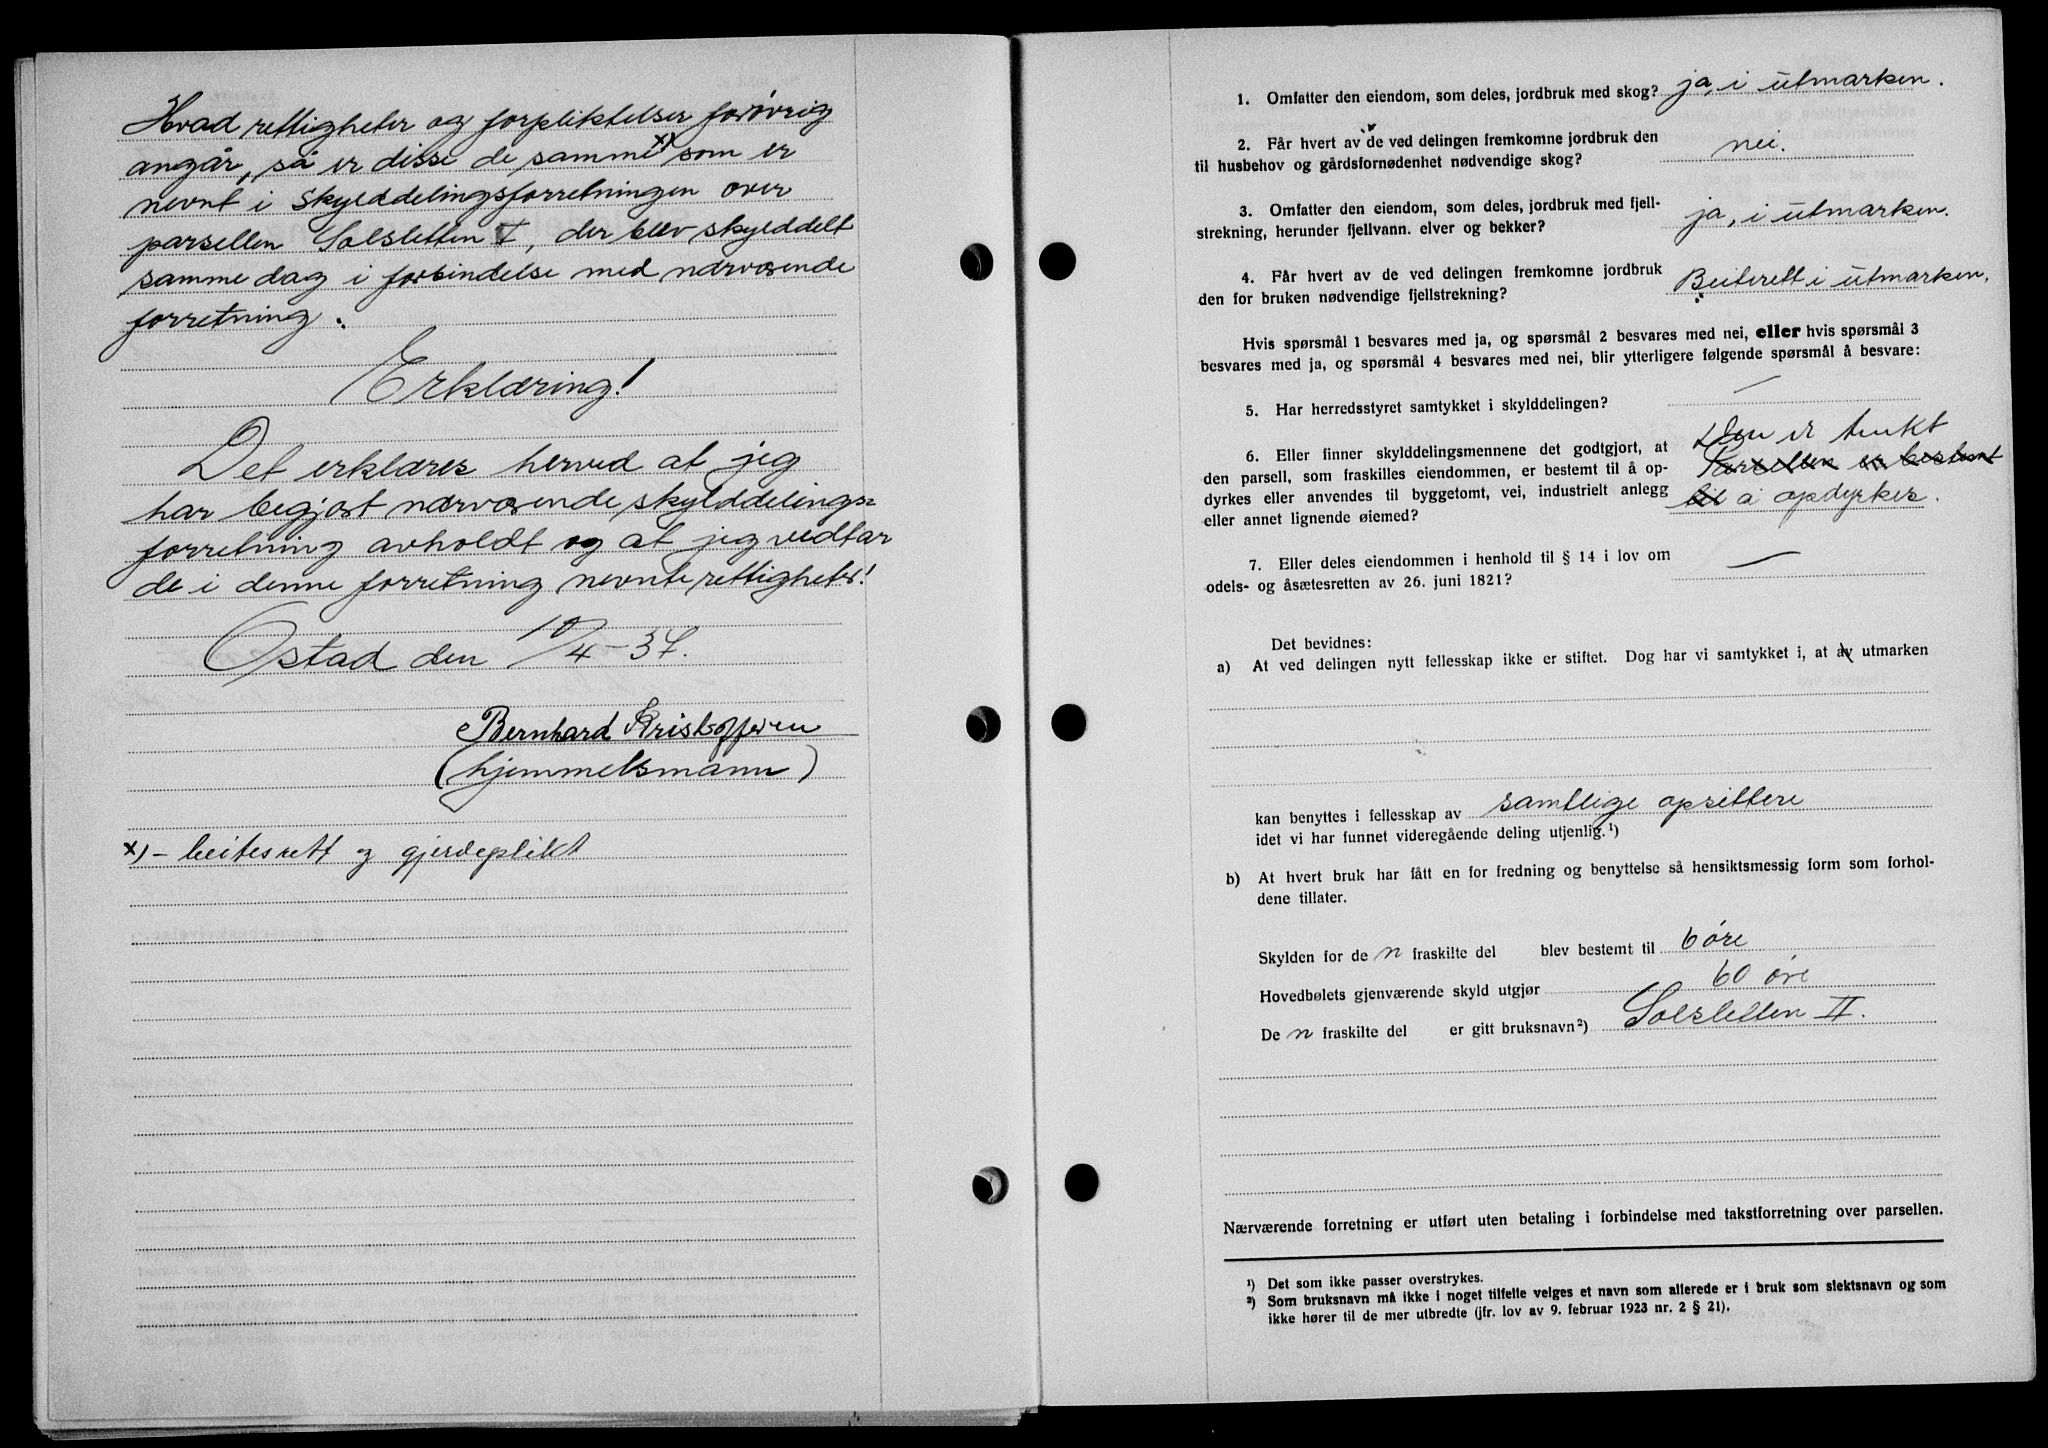 Hvad rettigheter og forpliktelser forøvrig
angår, så er disse de samme x) som er
nevnt i skylddelingsforretningen over
parsellen Solsletten I, der blev skylddelt
samme dag i forbindelse med nærværende
forretning.
Erklæring!
Det erklæres herved at jeg
har begjært nærværende skylddelings-
forretning avholdt og at jeg vedtar
de i denne forretning nevnte rettigheter!
Ostad den 10/4-37.
Bernhard Kristoffersen
(hjemmelsmann)
x) - beitesrett og gjerdeplikt
1. Omfatter den eiendom, som deles, jordbruk med skog? ja, i utmarken.
2. Får hvert av de ved delingen fremkomne jordbruk den
til husbehov og gårdsfornødenhet nødvendige skog? nei.
3. Omfatter den eiendom, som deles, jordbruk med fjell-
strekning, herunder fjellvann. elver og bekker? ja, i utmarken.
4. Får hvert av de ved delingen fremkomne jordbruk
den for bruken nødvendige fjellstrekning? Beiterett i utmarken.
Hvis spørsmål 1 besvares med ja, og spørsmål 2 besvares med nei, eller hvis spørsmål 3
besvares med ja, og spørsmål 4 besvares med nei, blir ytterligere følgende spørsmål å besvare:
5. Har herredsstyret samtykket i skylddelingen? —
6. Eller finner skylddelingsmennene det godtgjort, at
den parsell, som fraskilles eiendommen, er bestemt til å op-
dyrkes eller anvendes til byggetomt, vei, industrielt anlegg
eller annet lignende øiemed?
Den er tenkt
Parsellen er bestemt
til å opdyrkes.
7. Eller deles eiendommen i henhold til § 14 i lov om
odels- og åsætesretten av 26. juni 1821? —
Det bevidnes:
a) At ved delingen nytt fellesskap ikke er stiftet. Dog har vi samtykket i, at av utmarken
kan benyttes i fellesskap av samtlige opsittere
idet vi har funnet videregående deling utjenlig.¹)
b) At hvert bruk har fått en for fredning og benyttelse så hensiktsmessig form som forhol-
dene tillater.
Skylden for de n fraskilte del blev bestemt til 6 øre
Hovedbølets gjenværende skyld utgjør 60 øre
De n fraskilte del er gitt bruksnavn²) Solsletten II.
Nærværende forretning er utført uten betaling i forbindelse med takstforretning over parsellen.
¹) Det som ikke passer overstrykes.
²) Som bruksnavn må ikke i noget tilfelle velges et navn som allerede er i bruk som slektsnavn og som
ikke hører til de mer utbredte (jfr. lov av 9. februar 1923 nr. 2 § 21).